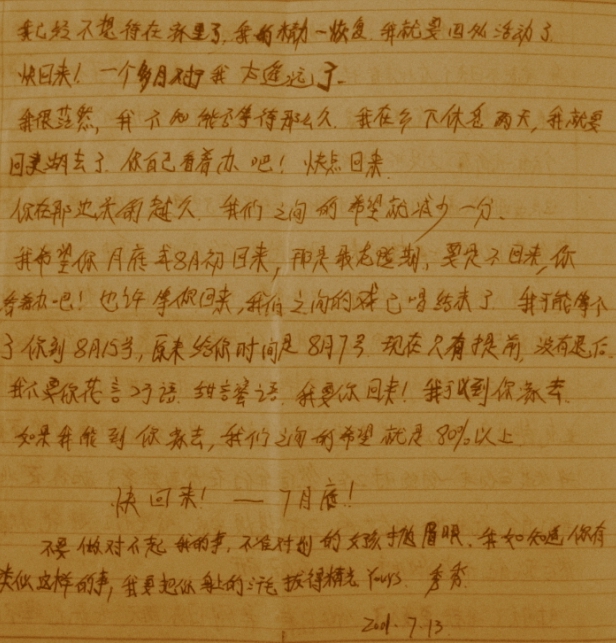 我已经不想待在深里了，我的精力一恢复，我就要四处活动了
快回来！一个多月对于我太遥远了。
我很茫然，我不知能否等待那么久。我在乡下休息两天，我就要
回芜湖去了，你自己看着办吧！快点回来
你在那边呆的越久，我们之间的希望就减少一分。
我希望你月底或8月初回来，那是我危险期，要是不回来，你
看着办吧！也许等你回来，我们之间的戏已唱结束了 我可能等不
了你到8月15号，原来给你时间是8月7号 现在只有提前，没有退后
我不要你花言巧语 甜言蜜语 我要你回来！我可以到你家去
如果我能到你家去，我们之间的希望就是80%以上
快回来！——7月底！
不要做对不起我的事，不准对别的女孩子抛眉眼，我如知道你有
类似这样的事，我要把你身上的汗毛拔得精光 Yours 秀秀
2001.7.13